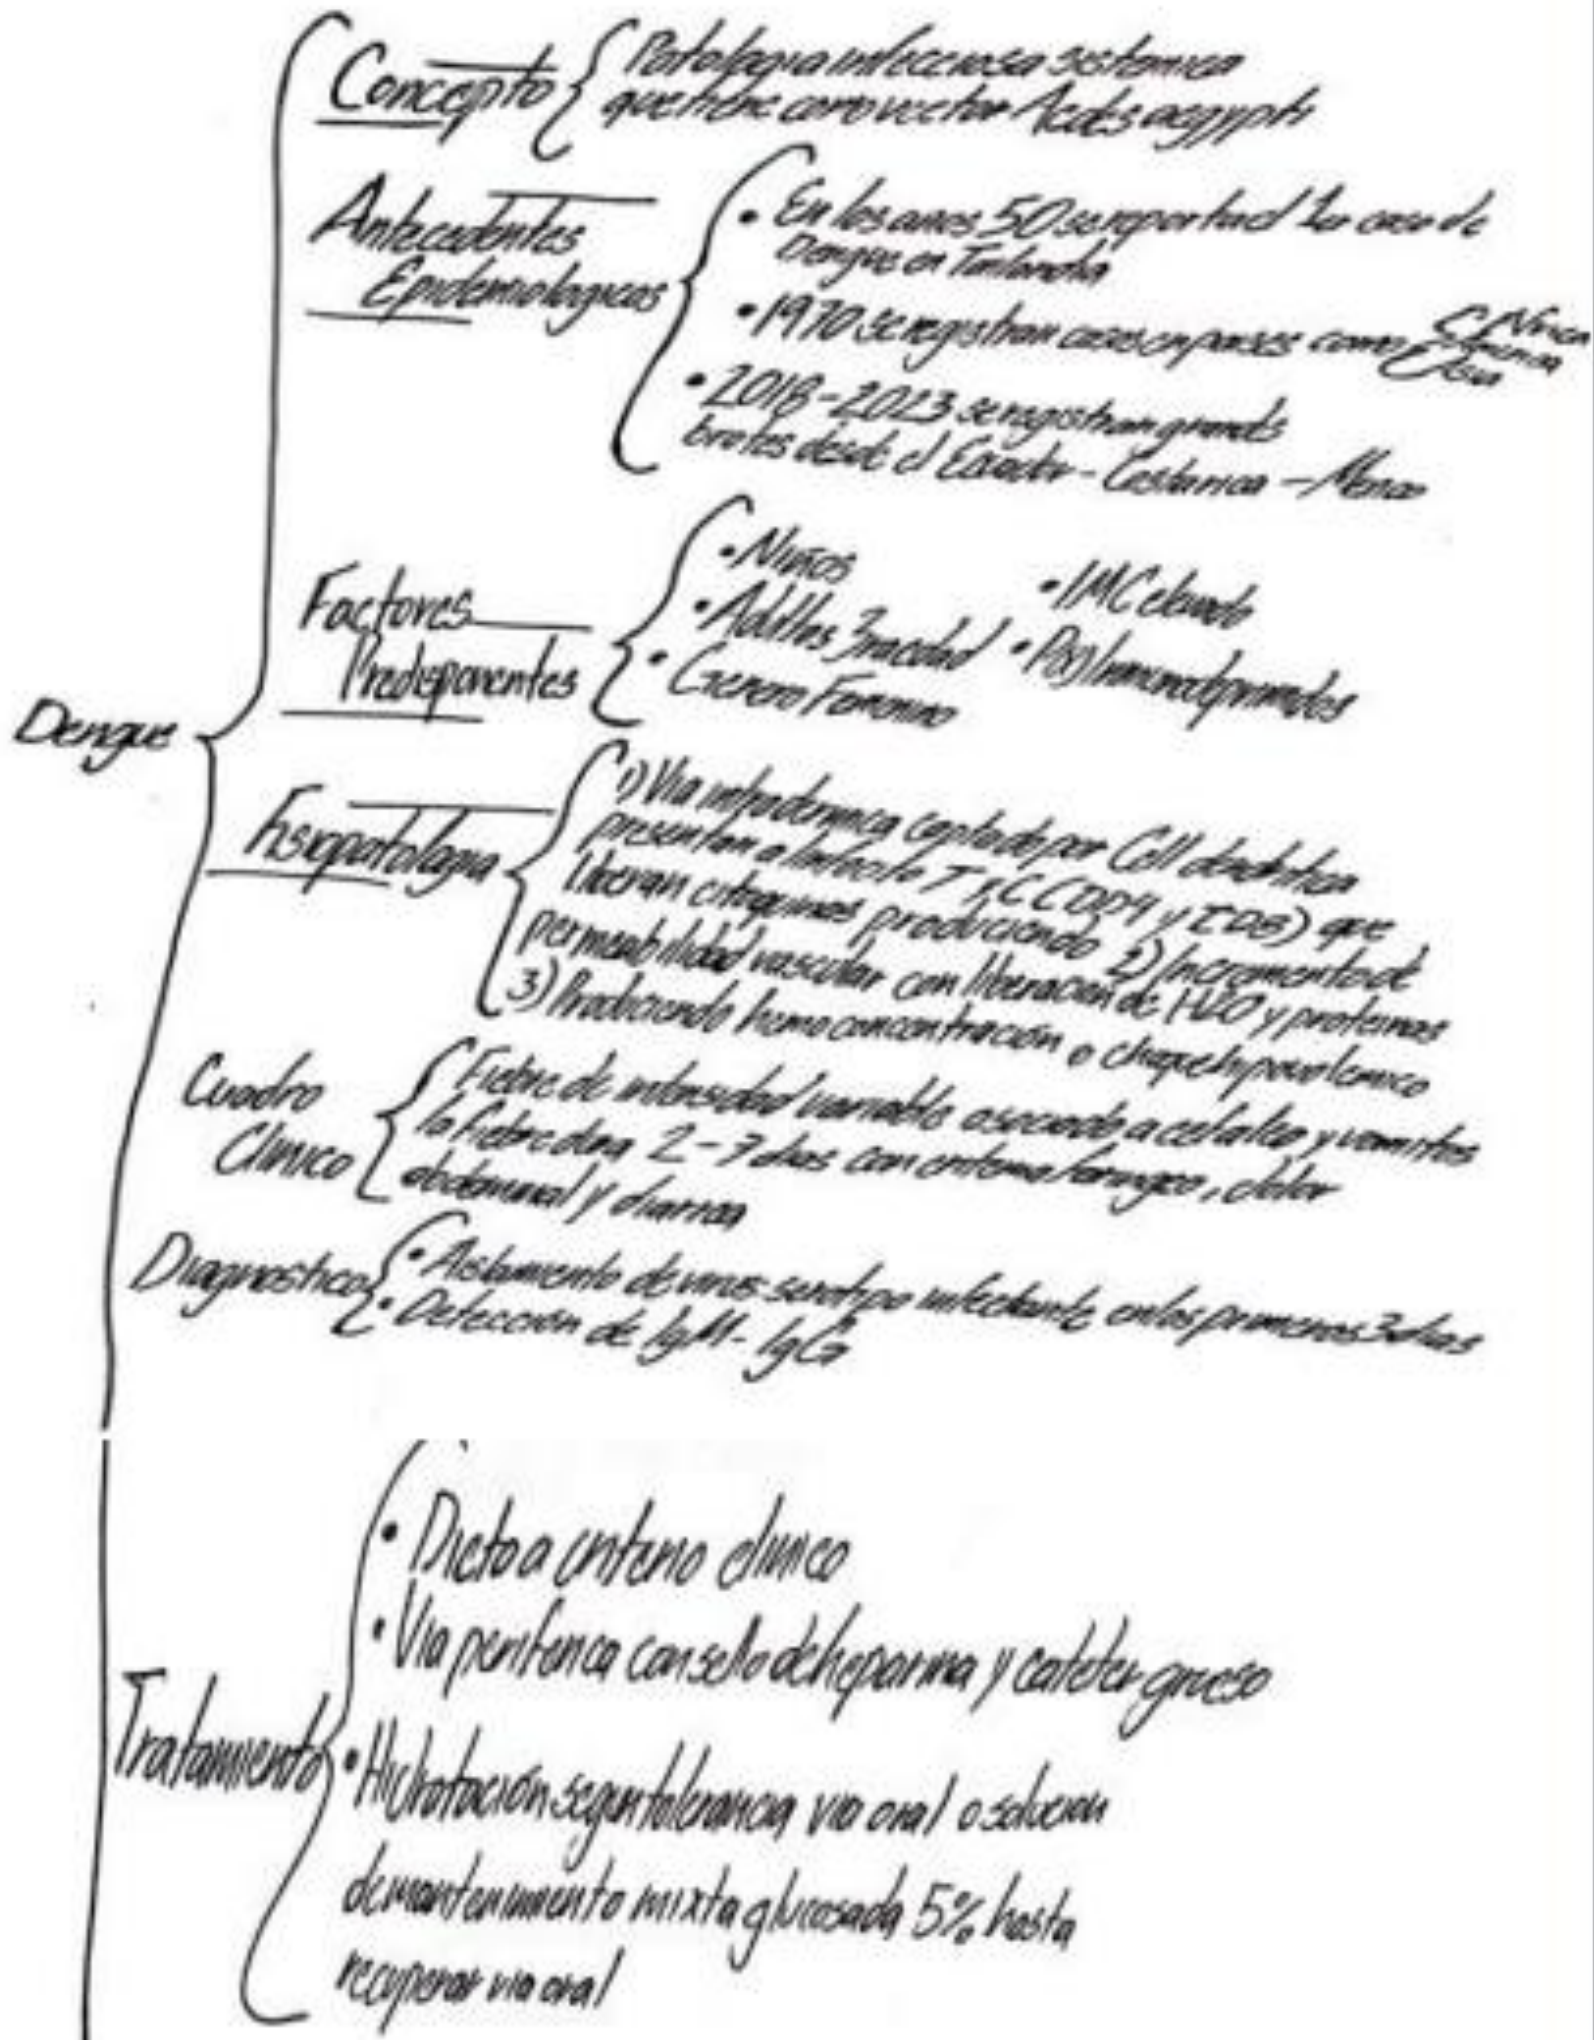 Dengue
Concepto
Patologia infecciosa sistemica
que tiene como vector Aedes aegypti
Antecedentes
Epidemiologicos
• En los años 50 se reporta el 1er caso de
Dengue en Tailandia
• 1970 se registran casos en paises como
Africa
America
Asia
• 2018-2023 se registran grandes
brotes desde el Ecuador - Costarica - Mexico
Factores
Predisponentes
• Niños
• Adultos 3ra edad
• Genero Femenino
• IMC elevado
• Inmunodeprimidos
Fisiopatologia
1) Via intradermica captado por Cell dendritica
presentan a linfocito T y C (CD4 y CD8) que
liberan citoquinas produciendo 2) Incremento de
permeabilidad vascular con liberacion de H2O y proteinas
3) Produciendo hemoconcentración o choque hipovolemico
Cuadro
Clinico
Fiebre de intensidad variable asociado a cefalea y vomitos
la fiebre dura 2-7 dias con eritema faringeo, dolor
abdominal y diarrea
Diagnostico
• Aislamiento de virus serotipo infectante en los primeros 3 dias
• Detección de IgM - IgG
Tratamiento
• Dieta a criterio clinico
• Via periferica con sello de heparina y cateter grueso
• Hidratación segun tolerancia via oral o solucion
de mantenimiento mixta glucosada 5% hasta
recuperar via oral